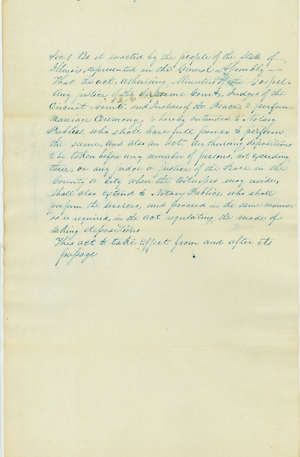 Sec 1 Be it enacted by the people of the State of
Illinois, represented in the General Assembly —
That the act, authorising Ministers of the Gospel,
Any justice of the Supreme Court, Judges of the
Circuit Court, and Justices of the Peace, to perform
Marriage Ceremony, is hereby extended to Notary
Publics, who shall have full power to perform
the same, And also an act Authorising depositions
to be taken before any number of persons, not exceeding
three or any judge or justice of the Peace in the
County or City where the witnesses may reside,
shall also extend to Notary Publics, who shall
perform the services, and proceed in the same manner
as is required, in the act regulating the mode of
taking depositions
This act to take effect from and after its
passage